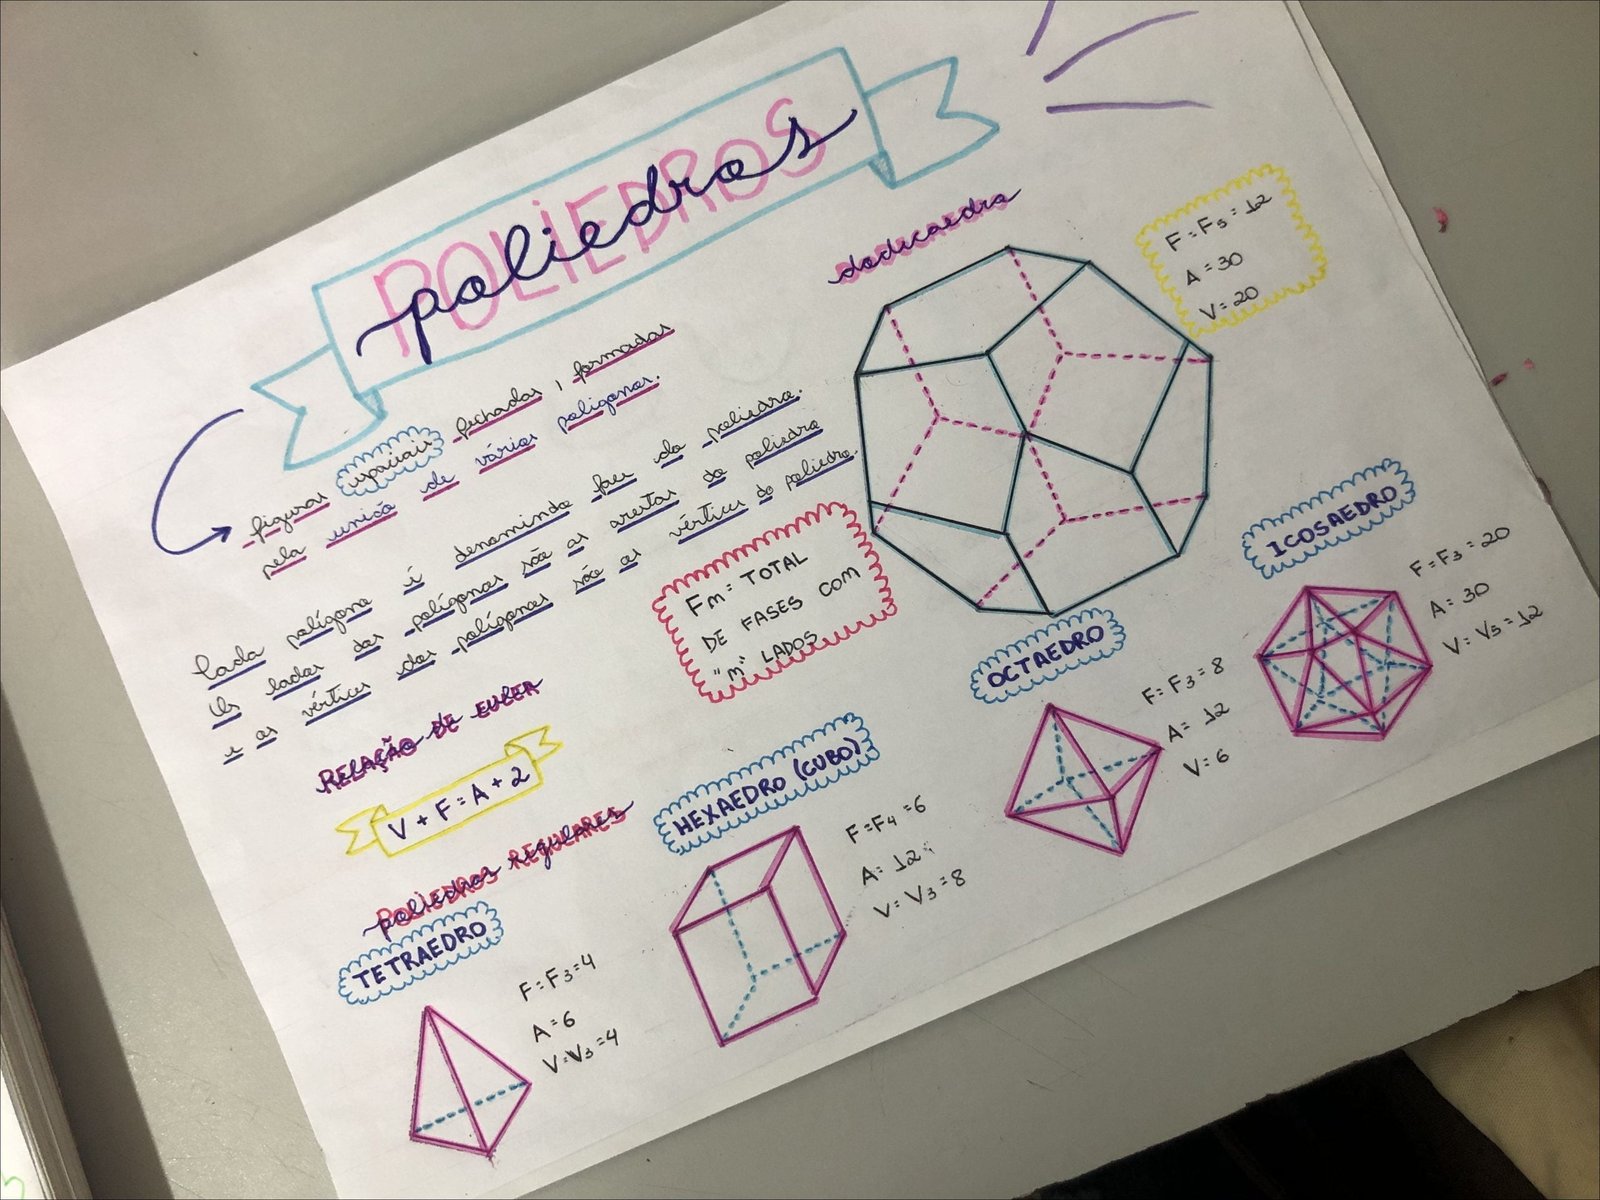 POLIEDROS
poliedros
figuras espaciais fechadas, formadas
pela união de vários polígonos.
Cada polígono é denominado face do poliedro.
Os lados dos polígonos são as arestas do poliedro
e os vértices dos polígonos são os vértices do poliedro.
Fm= TOTAL
DE FASES COM
"m" LADOS
dodecaedro
F=F5=12
A=30
V=20
RELAÇÃO DE EULER
V+F=A+2
POLIEDROS REGULARES
poliedros regulares
TETRAEDRO
F=F3=4
A=6
V=V3=4
HEXAEDRO (CUBO)
F=F4=6
A=12
V=V3=8
OCTAEDRO
F=F3=8
A=12
V=6
ICOSAEDRO
F=F3=20
A=30
V=V5=12